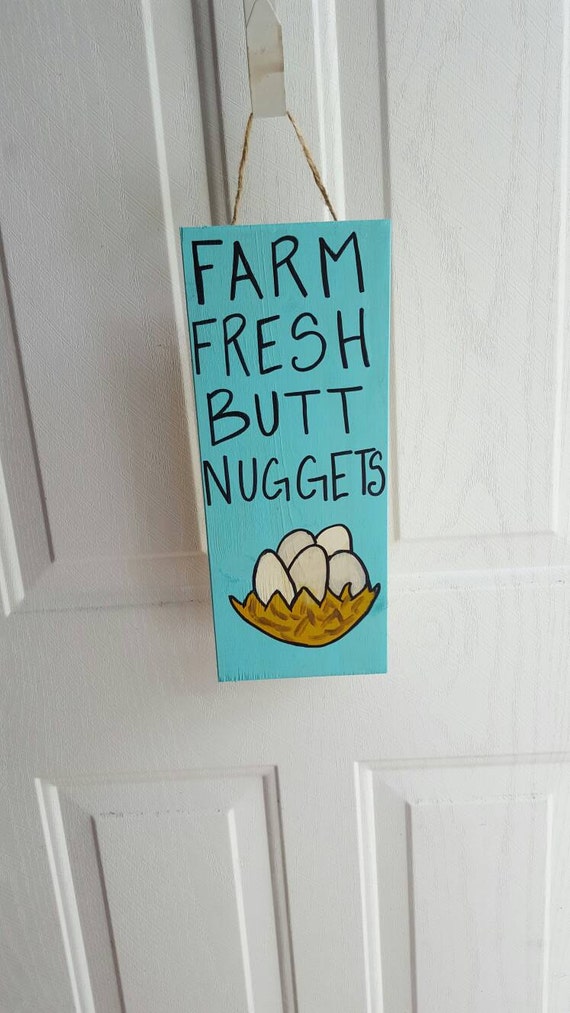 FARM
FRESH
BUTT
NUGGETS